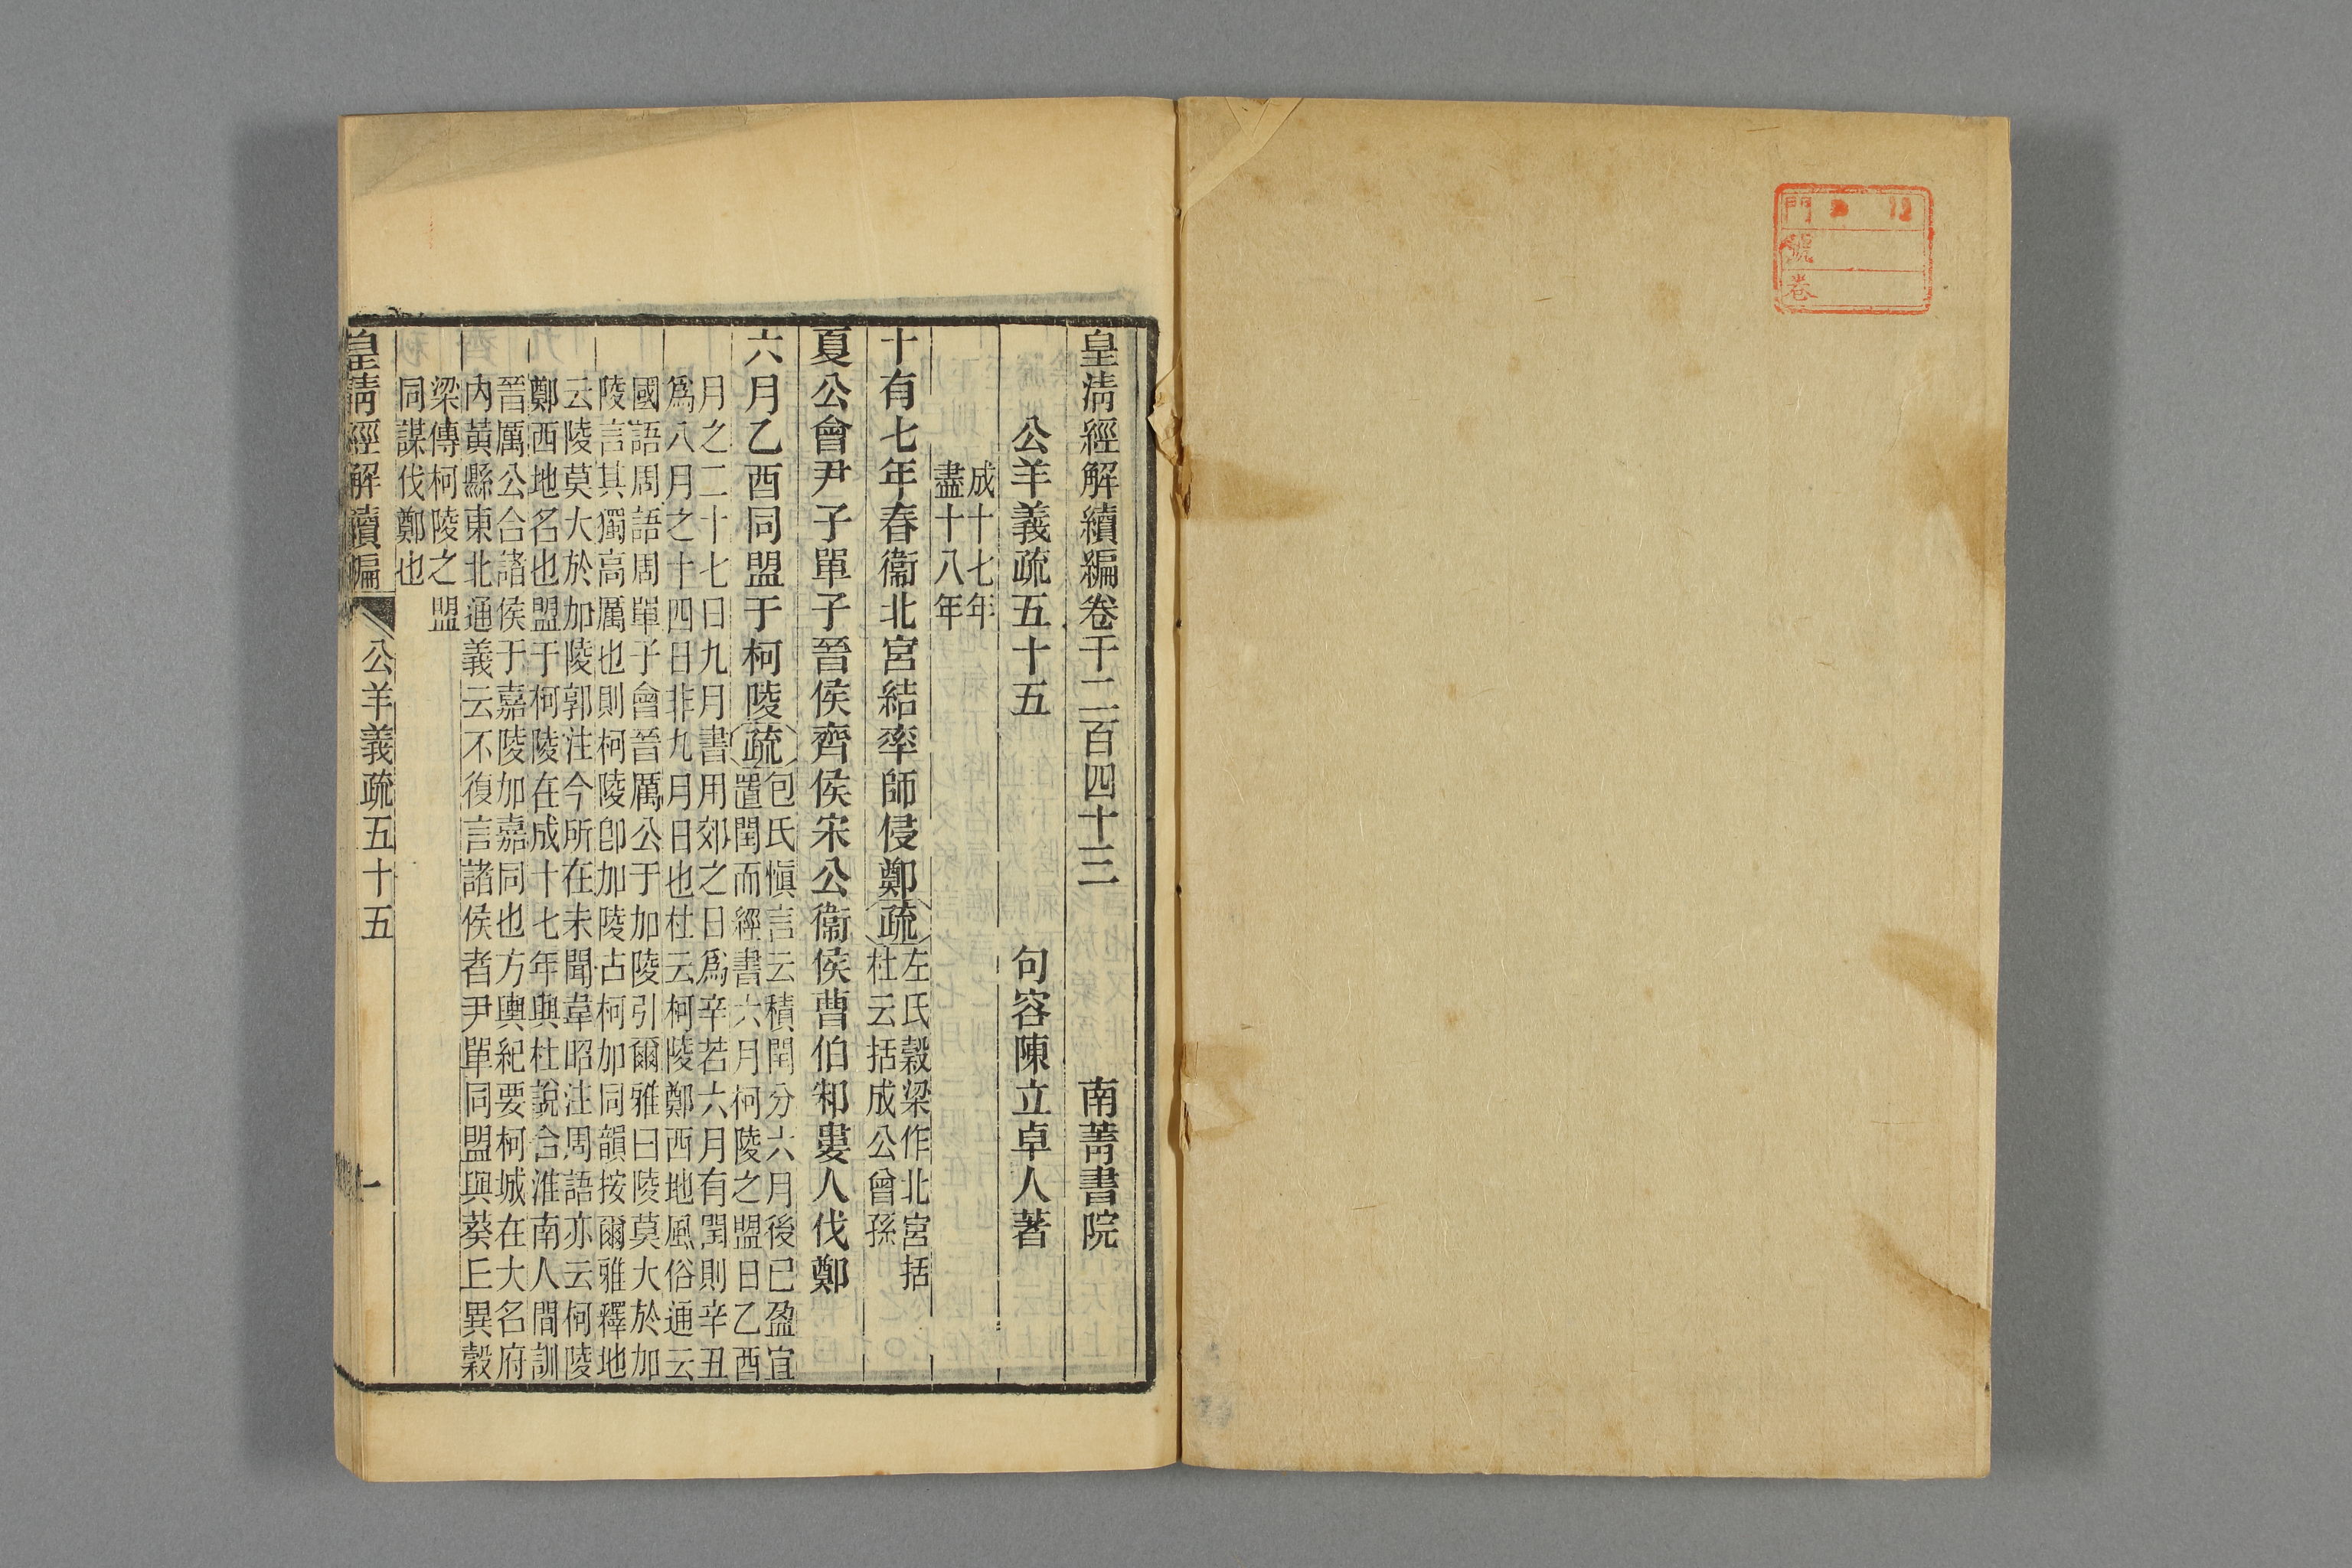 門
號
卷
皇清經解續編卷千二百四十三 南菁書院
公羊義疏五十五 句容陳立卓人著
成十七年
盡十八年
十有七年春衞北宮結率師侵鄭疏左氏穀梁作北宮括
杜云括成公曾孫
夏公會尹子單子晉侯齊侯宋公衞侯曹伯邾婁人伐鄭
六月乙酉同盟于柯陵疏包氏愼言云積閏分六月後已盈宜
置閏而經書六月柯陵之盟日乙酉
月之二十七日九月書用郊之日爲辛若六月有閏則辛丑
爲八月之十四日非九月日也杜云柯陵鄭西地風俗通云
國語周語周單子會晉厲公于加陵引爾雅曰陵莫大於加
陵言其獨高厲也則柯陵卽加陵古柯加同韻按爾雅釋地
云陵莫大於加陵郭注今所在未聞韋昭注周語亦云柯陵
鄭西地名也盟于柯陵在成十七年與杜說合淮南人閒訓
晉厲公合諸侯于嘉陵加嘉同也方輿紀要柯城在大名府
內黃縣東北通義云不復言諸侯者尹單同盟與葵丘異穀
梁傳柯陵之盟
同謀伐鄭也
皇清經解續編 公羊義疏五十五 一